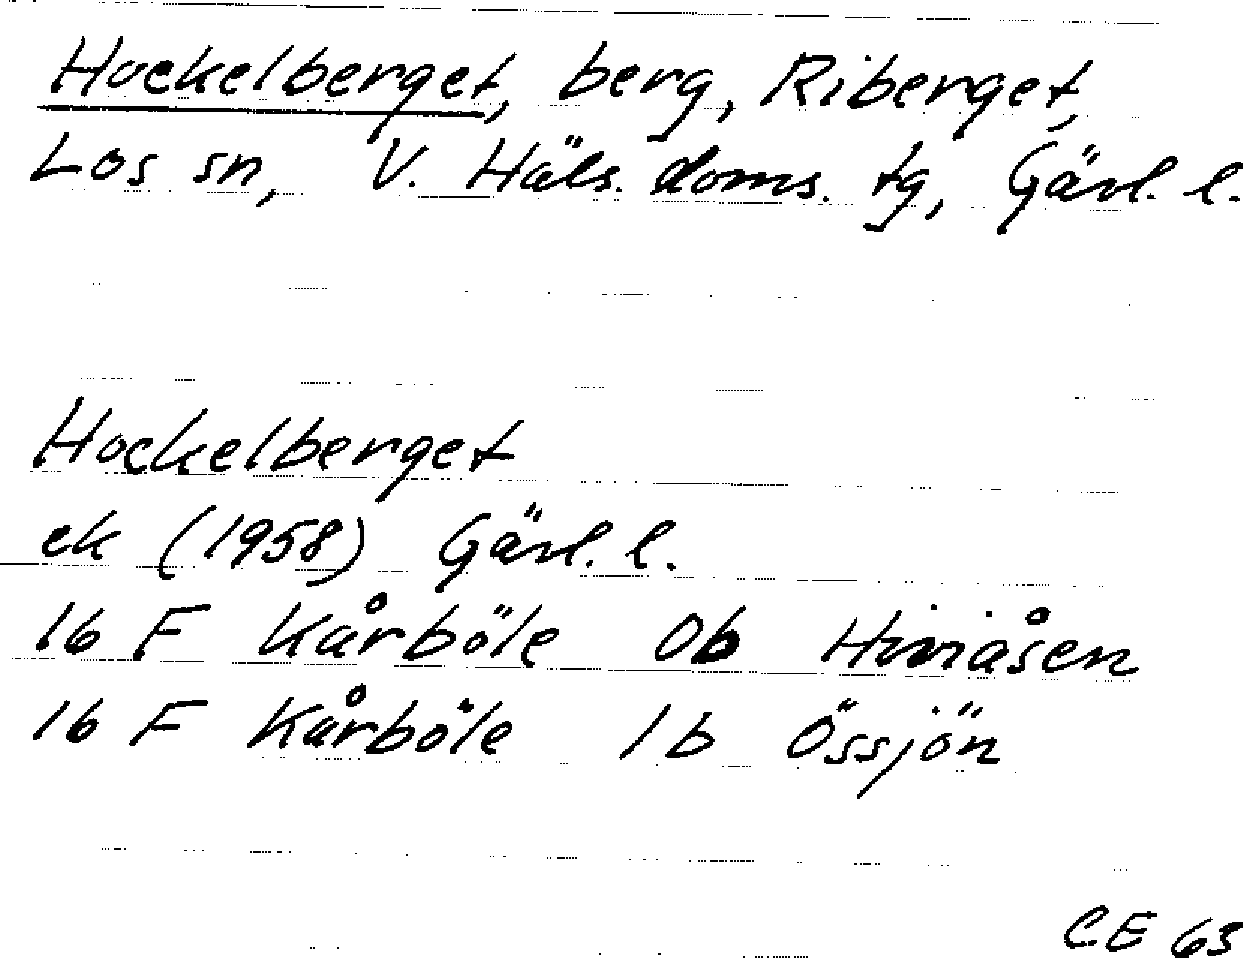 Hockelberget, berg, Riberget,
Los sn, V. Häls. doms. tg, Gävl. l.
Hockelberget
ek (1958) Gävl. l.
16 F Kårböle 0b
16 F Kårböle 1b Össjön
CE 63